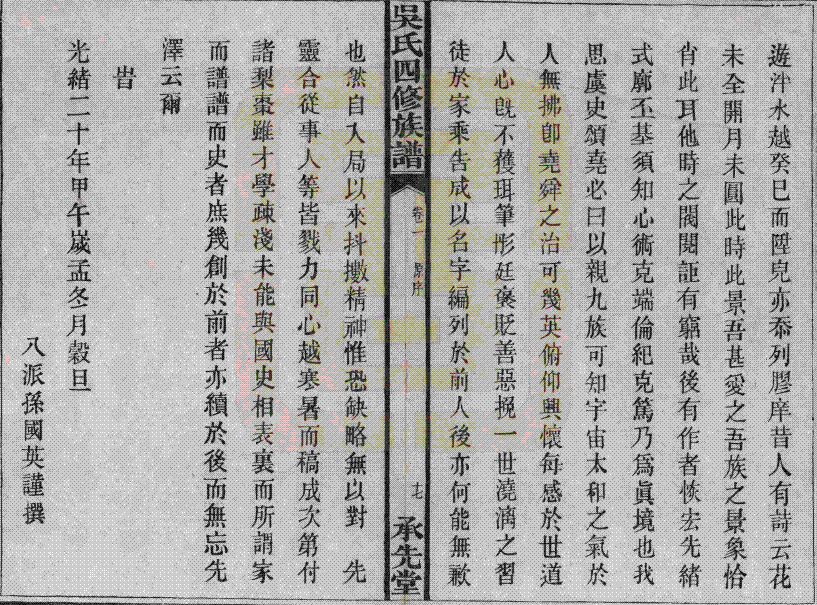 遊泮水越癸巳而陞兒亦忝列膠庠昔人有詩云花
未全開月未圓此時此景吾甚愛之吾族之景象恰
肖此耳他時之閥閱詎有窮哉後有作者恢宏先緒
式廓丕基須知心術克端倫紀克篤乃爲眞境也我
思虞史頌堯必曰以親九族可知宇宙太和之氣於
人無拂卽堯舜之治可幾英俯仰興懷每感於世道
人心旣不獲珥筆彤廷褒貶善惡挽一世澆漓之習
徒於家乘告成以名字編列於前人後亦何能無歉
吳氏四修族譜
卷一
原序
承先堂
也然自入局以來抖擻精神惟恐缺略無以對 先
靈合從事人等皆戮力同心越寒暑而稿成次第付
諸梨棗雖才學疎淺未能與國史相表裏而所謂家
而譜譜而史者庶幾創於前者亦續於後而無忘先
澤云爾
旹
光緒二十年甲午嵗孟冬月穀旦
八派孫國英謹撰